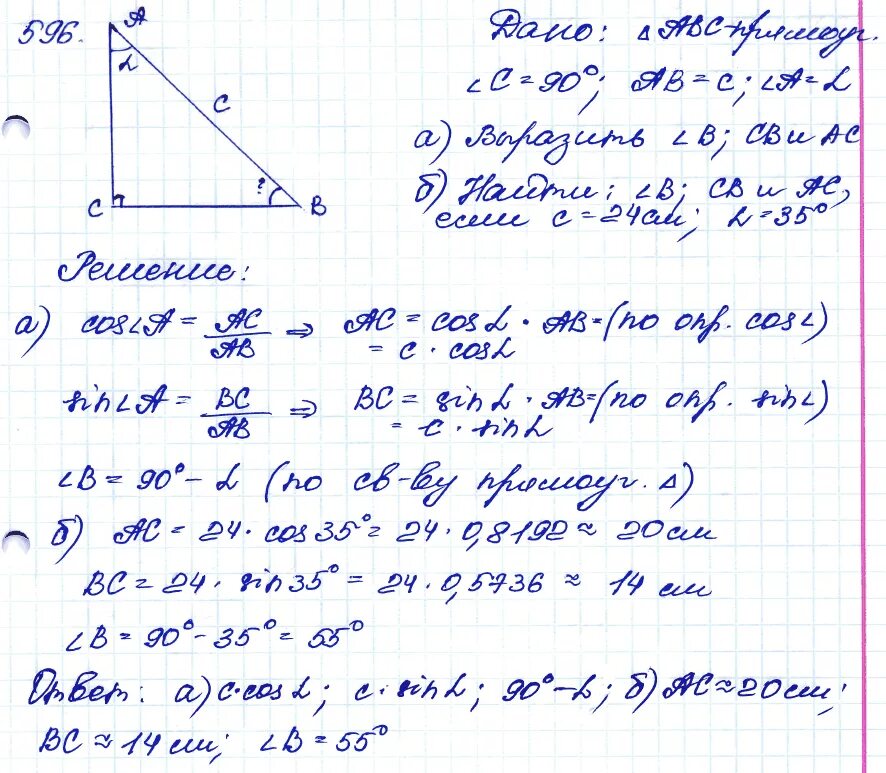 596.
A
α
c
C
?
B
Дано: △ABC-прямоуг.
∠C=90°; AB=c; ∠A=α
а) Выразить ∠B; CB и AC
б) Найти: ∠B; CB и AC,
если c=24см; α=35°
Решение:
а) cos∠A = AC/AB ⇒ AC = cosα · AB=(по опр. cos∠)
= c · cosα
sin∠A = BC/AB ⇒ BC = sinα · AB=(по опр. sin∠)
= c · sinα
∠B = 90° - α (по св-ву прямоуг. △)
б) AC = 24 · cos35° = 24 · 0,8192 ≈ 20 см
BC = 24 · sin35° = 24 · 0,5736 ≈ 14 см
∠B = 90° - 35° = 55°
Ответ: а) c·cosα; c·sinα; 90°-α; б) AC≈20см;
BC ≈ 14 см; ∠B = 55°